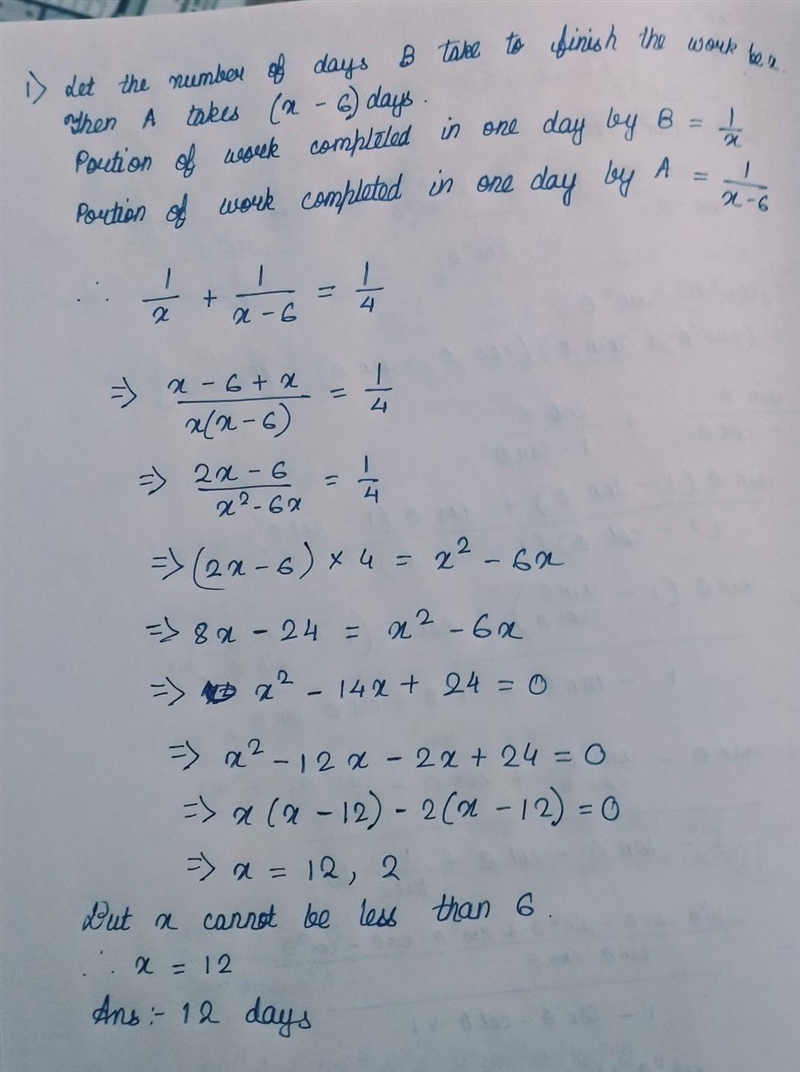 1) Let the number of days B take to finish the work be x.
Then A takes (x - 6) days.
Portion of work completed in one day by B = 1/x
Portion of work completed in one day by A = 1/(x-6)
∴ 1/x + 1/(x-6) = 1/4
⇒ (x - 6 + x)/(x(x-6)) = 1/4
⇒ (2x - 6)/(x² - 6x) = 1/4
⇒ (2x - 6) × 4 = x² - 6x
⇒ 8x - 24 = x² - 6x
⇒ x² - 14x + 24 = 0
⇒ x² - 12x - 2x + 24 = 0
⇒ x(x - 12) - 2(x - 12) = 0
⇒ x = 12, 2
But x cannot be less than 6.
∴ x = 12
Ans:- 12 days